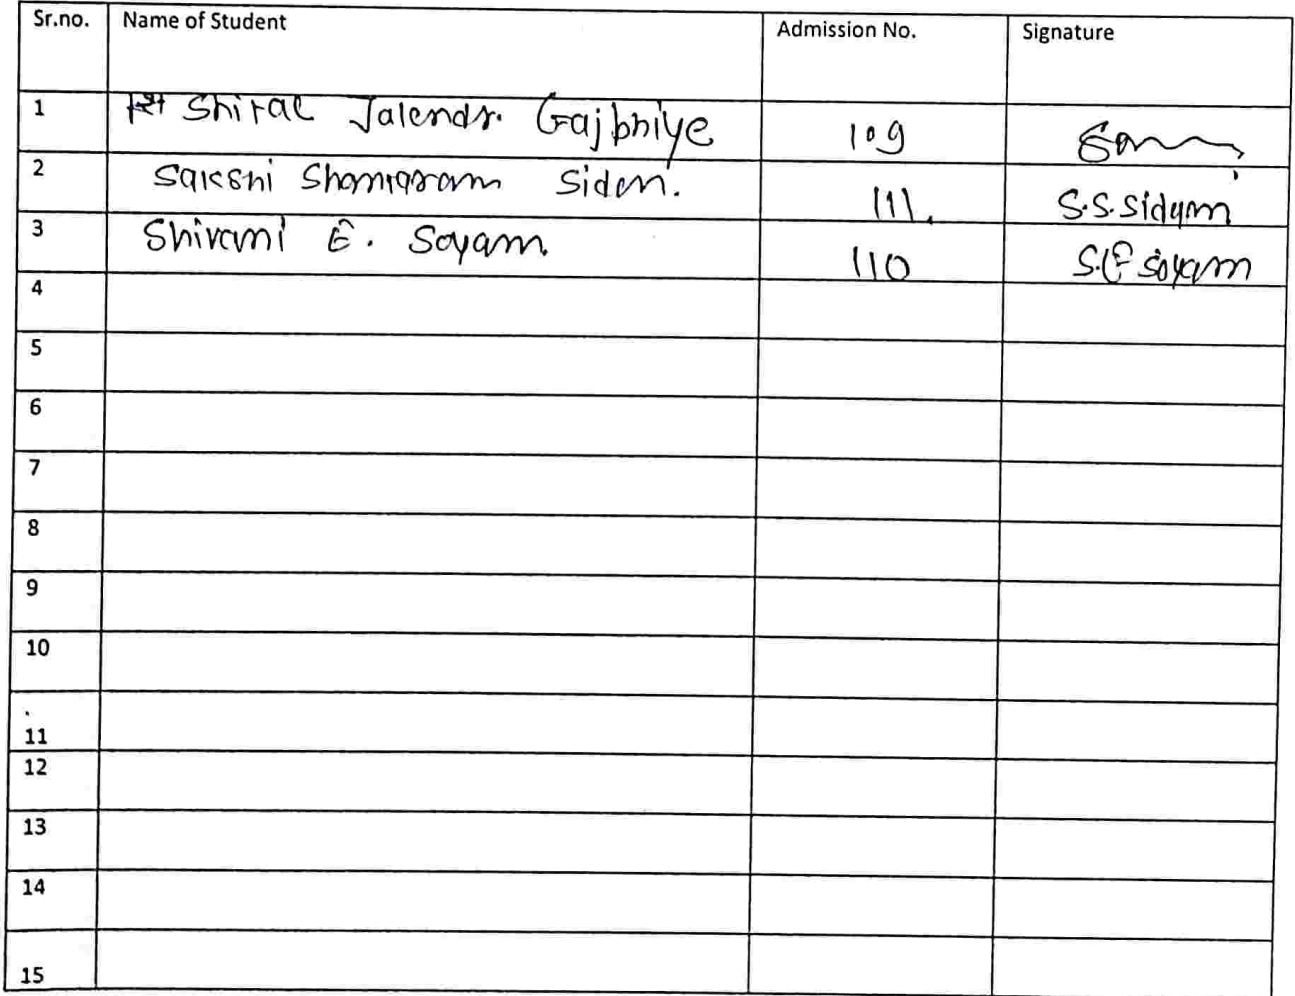 Sr.no. Name of Student Admission No. Signature
1 Shital Jalendr. Gajbhiye 109
2 Sakshi Shamraram Sidam. 111. S.S.Sidam
3 Shivani E. Soyam. 110 S.E soyam
4
5
6
7
8
9
10
11
12
13
14
15